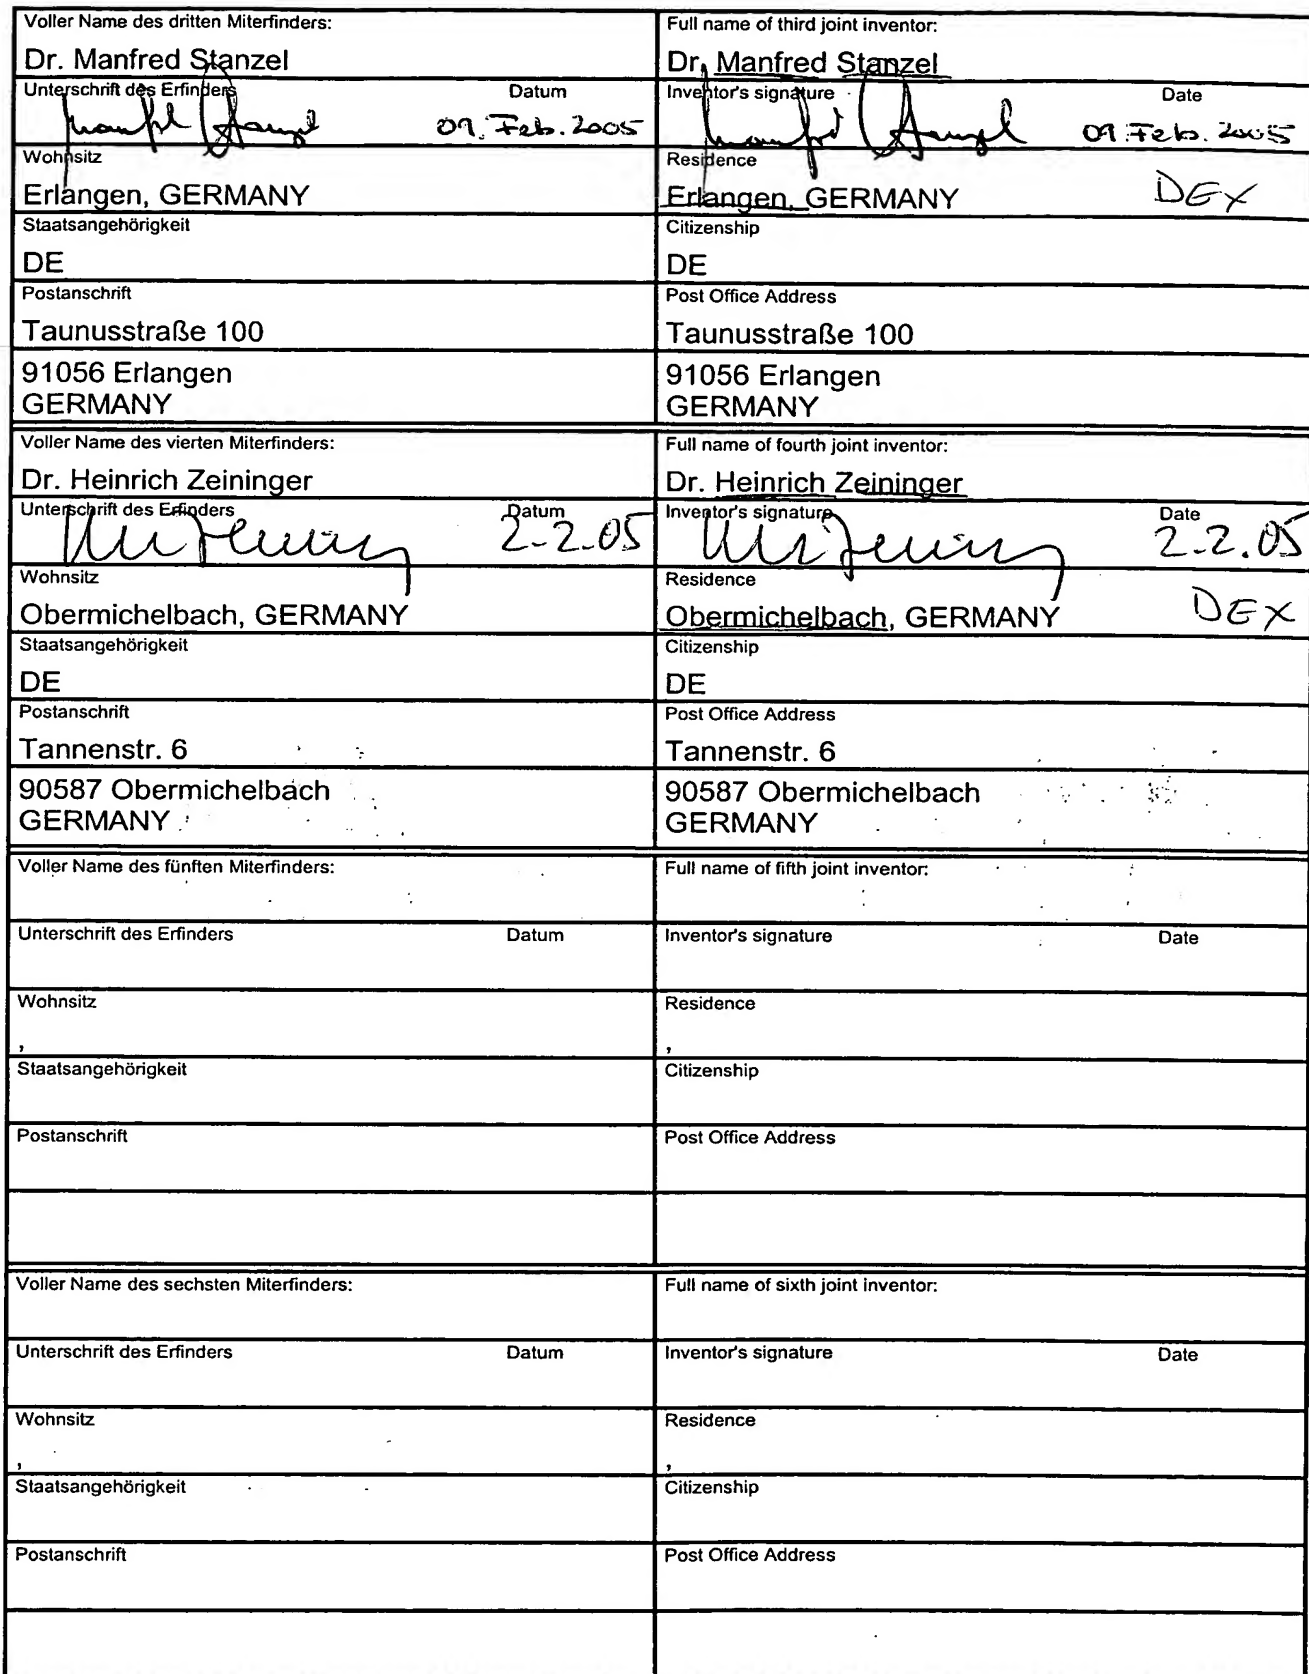 Voller Name des dritten Miterfinders:
Dr. Manfred Stanzel
Unterschrift des Erfinders Datum
09. Feb. 2005
Wohnsitz
Erlangen, GERMANY
Staatsangehörigkeit
DE
Postanschrift
Taunusstraße 100
91056 Erlangen
GERMANY
Voller Name des vierten Miterfinders:
Dr. Heinrich Zeininger
Unterschrift des Erfinders Datum
2.2.05
Wohnsitz
Obermichelbach, GERMANY
Staatsangehörigkeit
DE
Postanschrift
Tannenstr. 6
90587 Obermichelbach
GERMANY
Voller Name des fünften Miterfinders:
Unterschrift des Erfinders Datum
Wohnsitz
,
Staatsangehörigkeit
Postanschrift
Voller Name des sechsten Miterfinders:
Unterschrift des Erfinders Datum
Wohnsitz
,
Staatsangehörigkeit
Postanschrift
Full name of third joint inventor:
Dr. Manfred Stanzel
Inventor's signature Date
09. Feb. 2005
Residence
Erlangen, GERMANY DEX
Citizenship
DE
Post Office Address
Taunusstraße 100
91056 Erlangen
GERMANY
Full name of fourth joint inventor:
Dr. Heinrich Zeininger
Inventor's signature Date
2.2.05
Residence
Obermichelbach, GERMANY DEX
Citizenship
DE
Post Office Address
Tannenstr. 6
90587 Obermichelbach
GERMANY
Full name of fifth joint inventor:
Inventor's signature Date
Residence
,
Citizenship
Post Office Address
Full name of sixth joint inventor:
Inventor's signature Date
Residence
,
Citizenship
Post Office Address